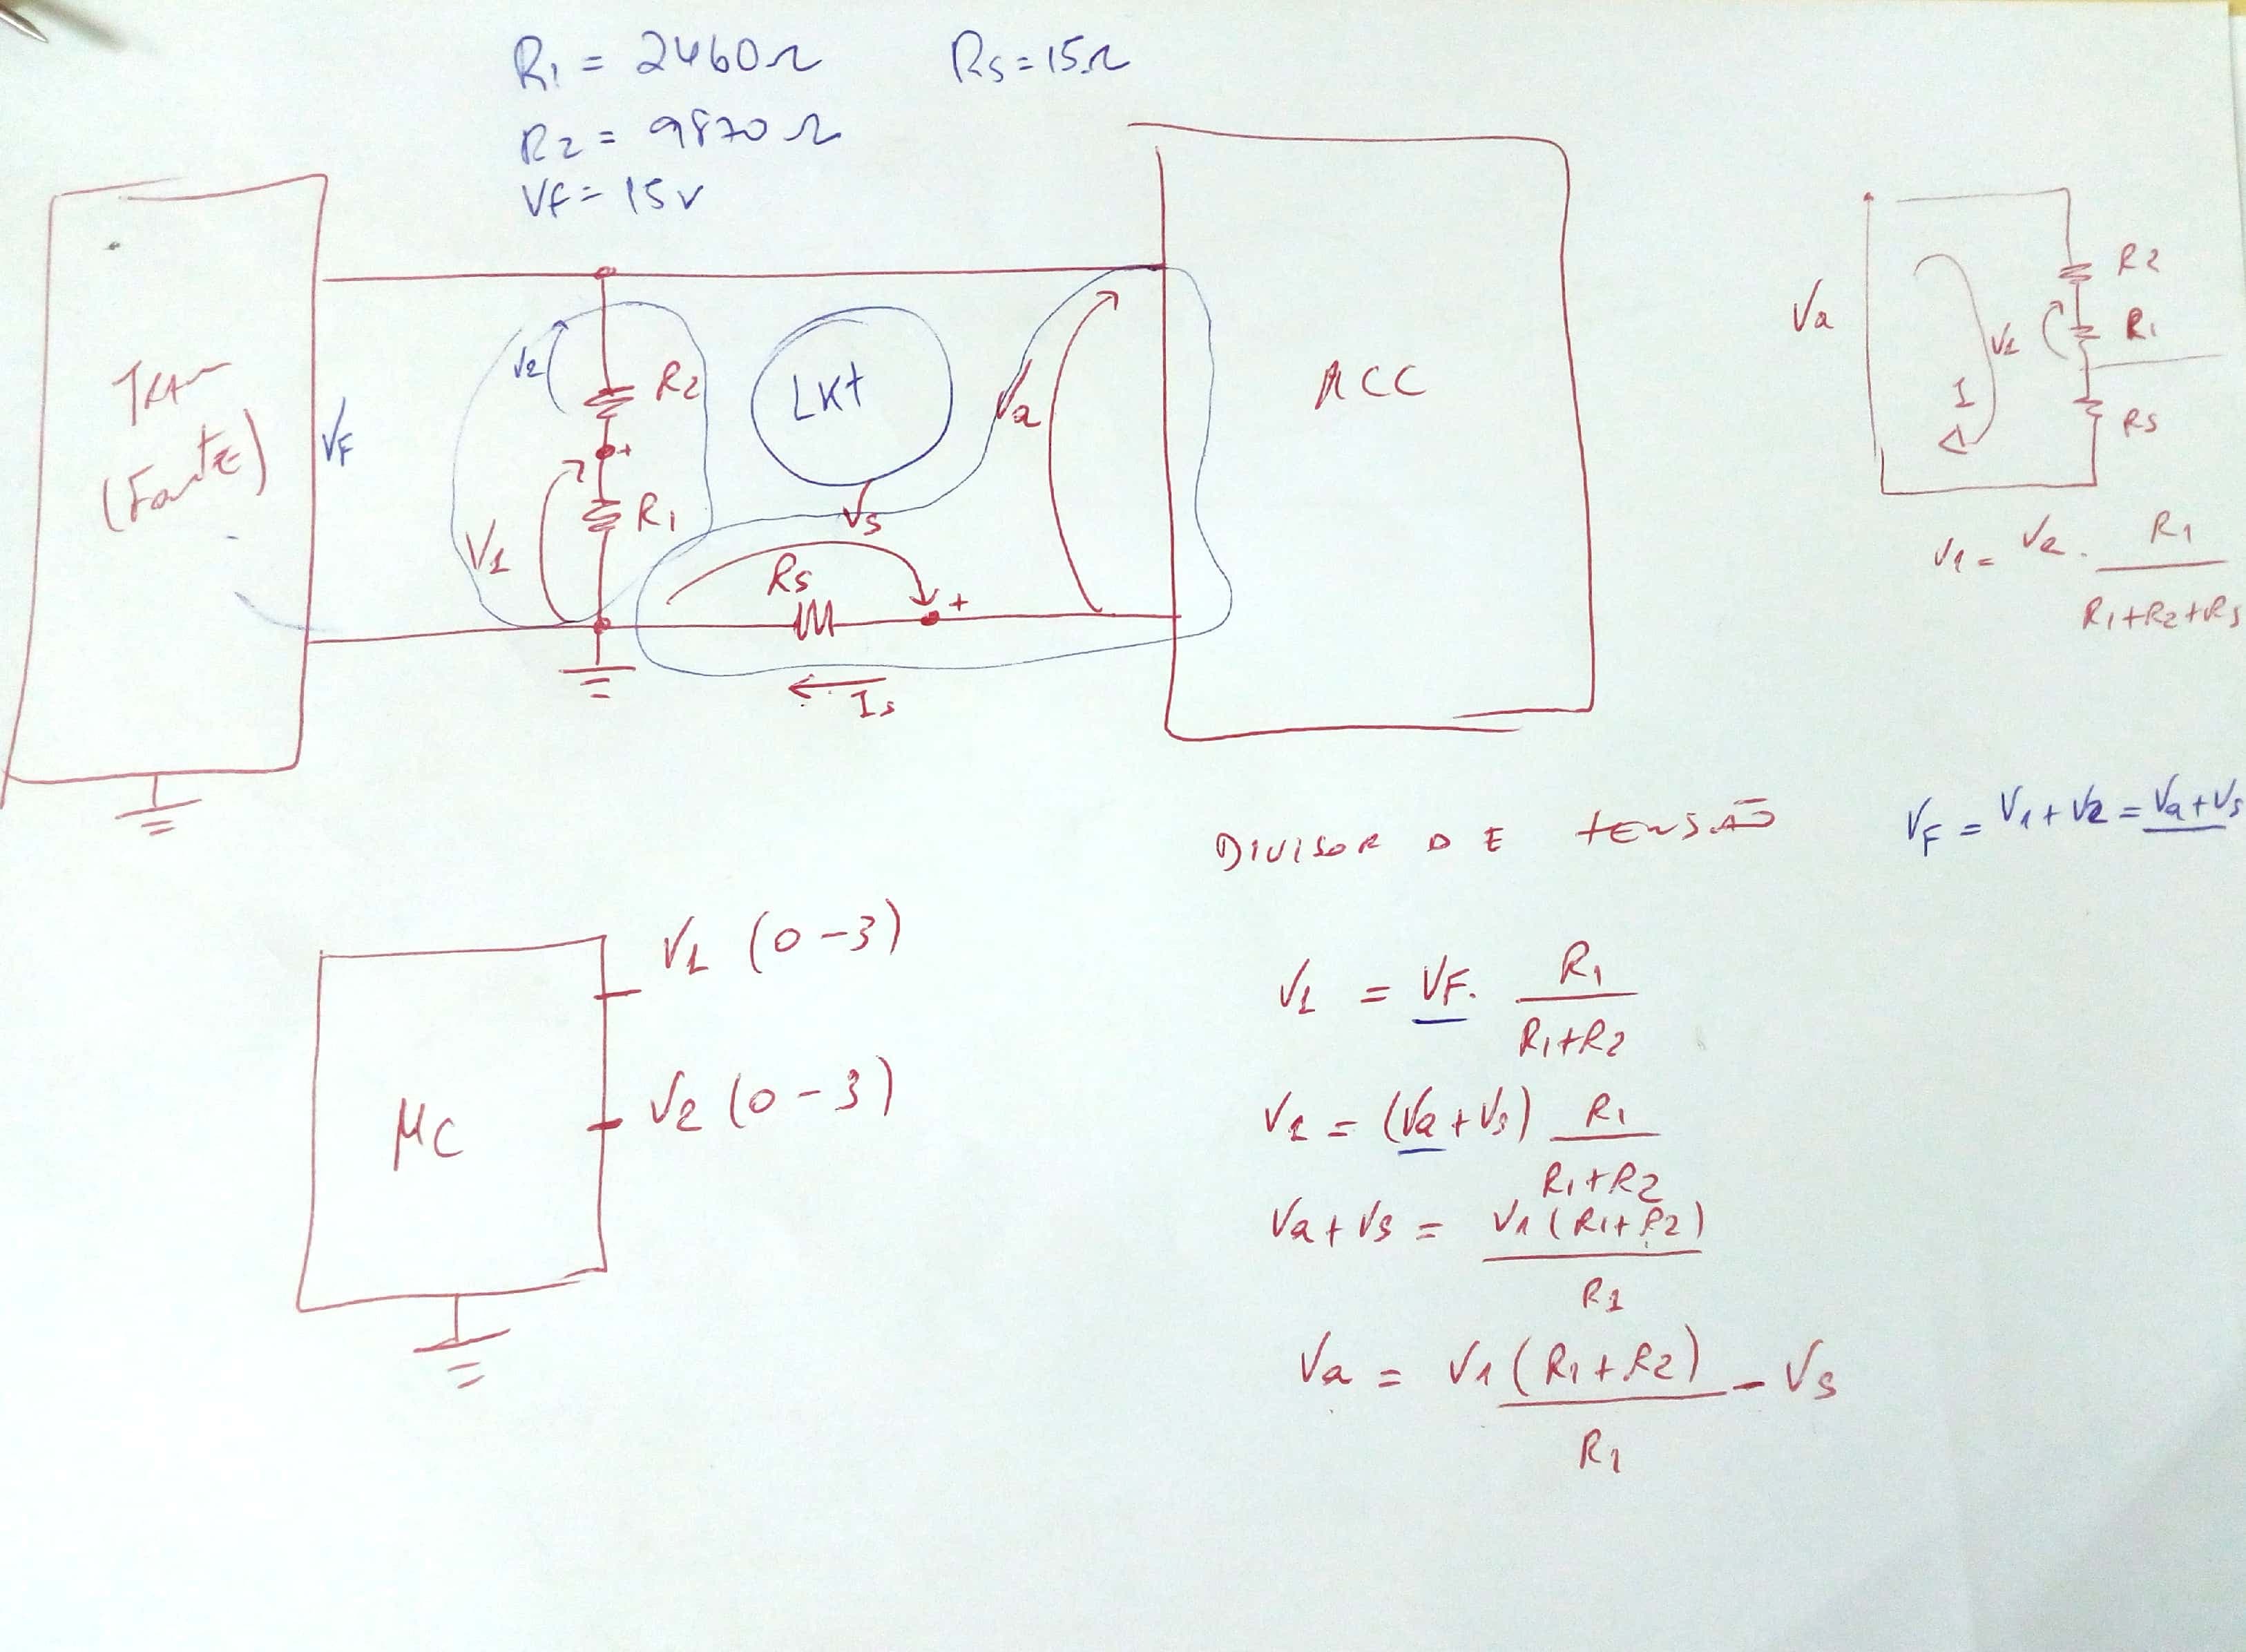 R1 = 2460Ω   RS = 15Ω
R2 = 9870Ω
VF = 15V
(Fonte)
VF
V2
R2
+
V1
R1
LKT
VS
RS
+
IS
Va
ACC
Va
I
V1
R2
R1
RS
V1 = Va . R1
R1+R2+RS
DIVISOR DE TENSÃO
VF = V1 + V2 = Va + VS
μC
V1 (0-3)
V2 (0-3)
V1 = VF . R1
R1+R2
V1 = (Va + VS) R1
R1+R2
Va + VS = V1 (R1+R2)
R1
Va = V1 (R1+R2) - VS
R1